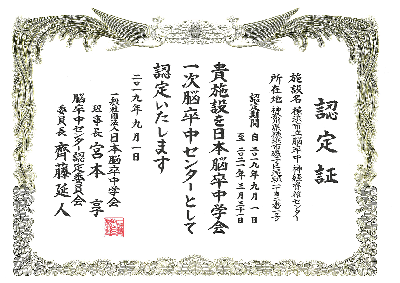 認定証
施設名 横浜市立脳卒中・神経脊椎センター
所在地 神奈川県横浜市磯子区滝頭
認定期間 自 二〇一九年 九月 一日
至 二〇二二年 三月三十一日
貴施設を日本脳卒中学会
一次脳卒中センターとして
認定いたします
二〇一九年 九月 一日
一般社団法人日本脳卒中学会
理事長 宮本 享
脳卒中センター認定委員会
委員長 齊藤延人